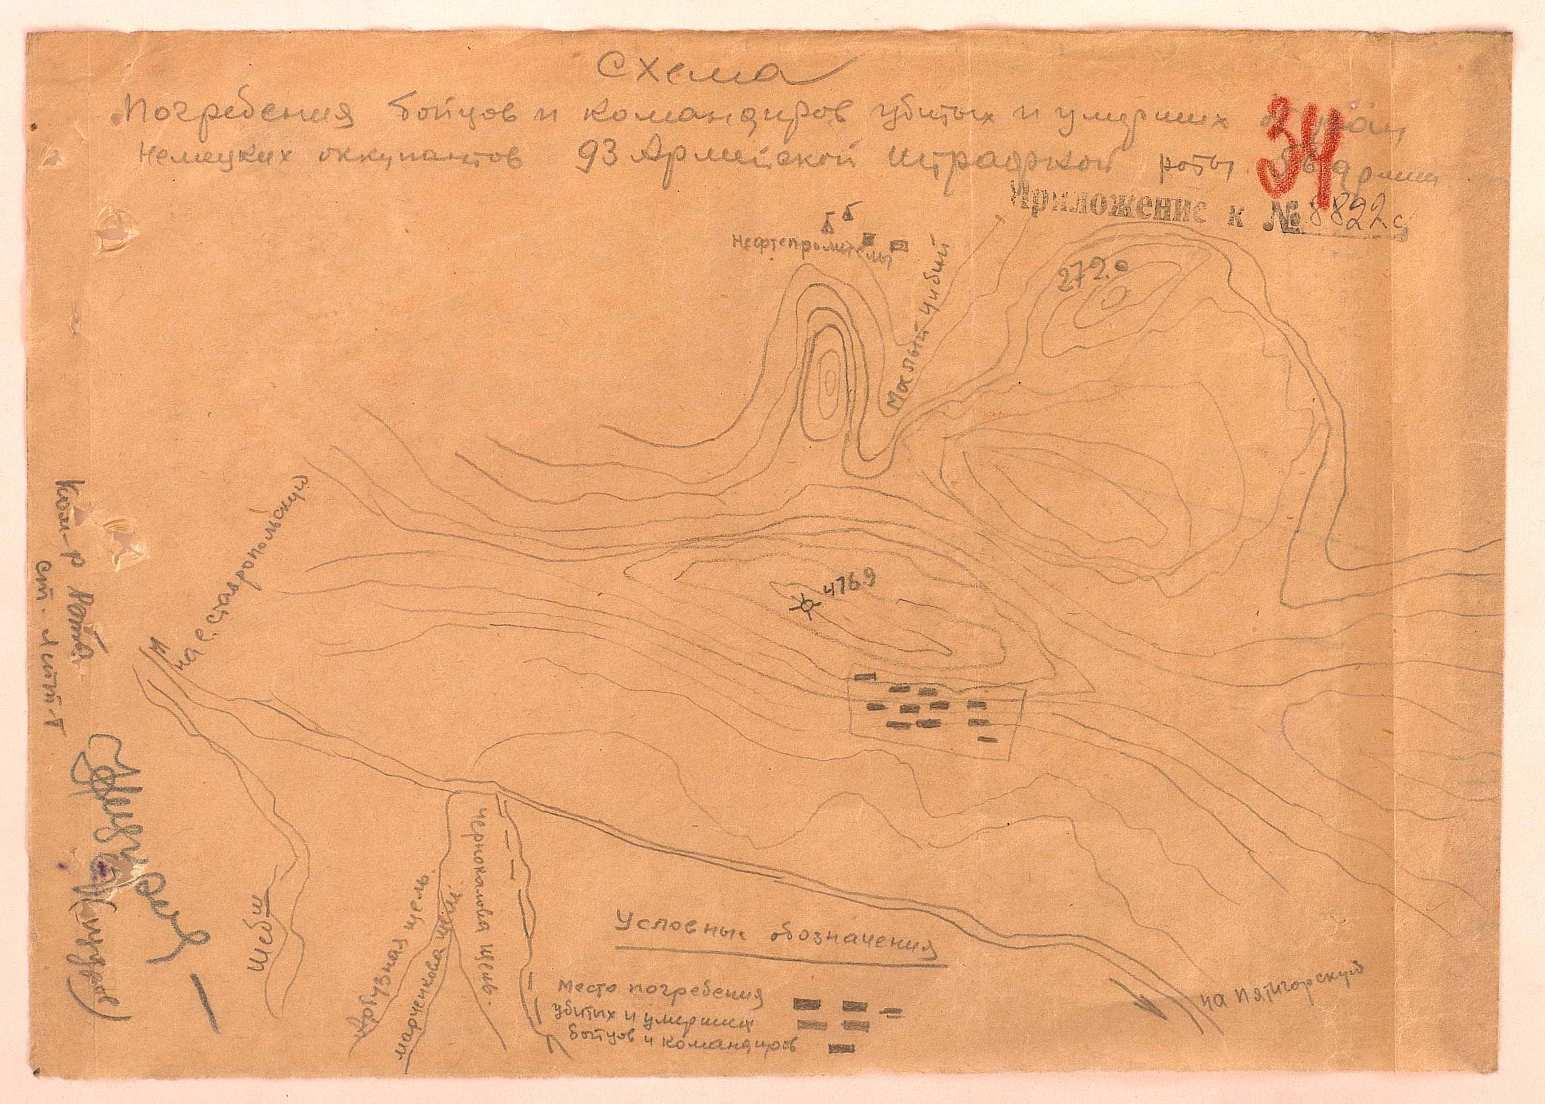 Схема
Погребения бойцов и командиров убитых и умерших от
Немецких оккупантов 93 Армейской штрафной роты 56 армии
34
Приложение к № 8822с
Б Б
Нефтепромыслы
Малый чибий
272.
476.9
на с. Ставропольскую
Ком-р Роты
ст. л-т
Шебш
Арбузная щель.
Марченкова щель.
Чернокалова щель.
на Пятигорскую
Условные обозначения
Место погребения
убитых и умерших
бойцов и командиров